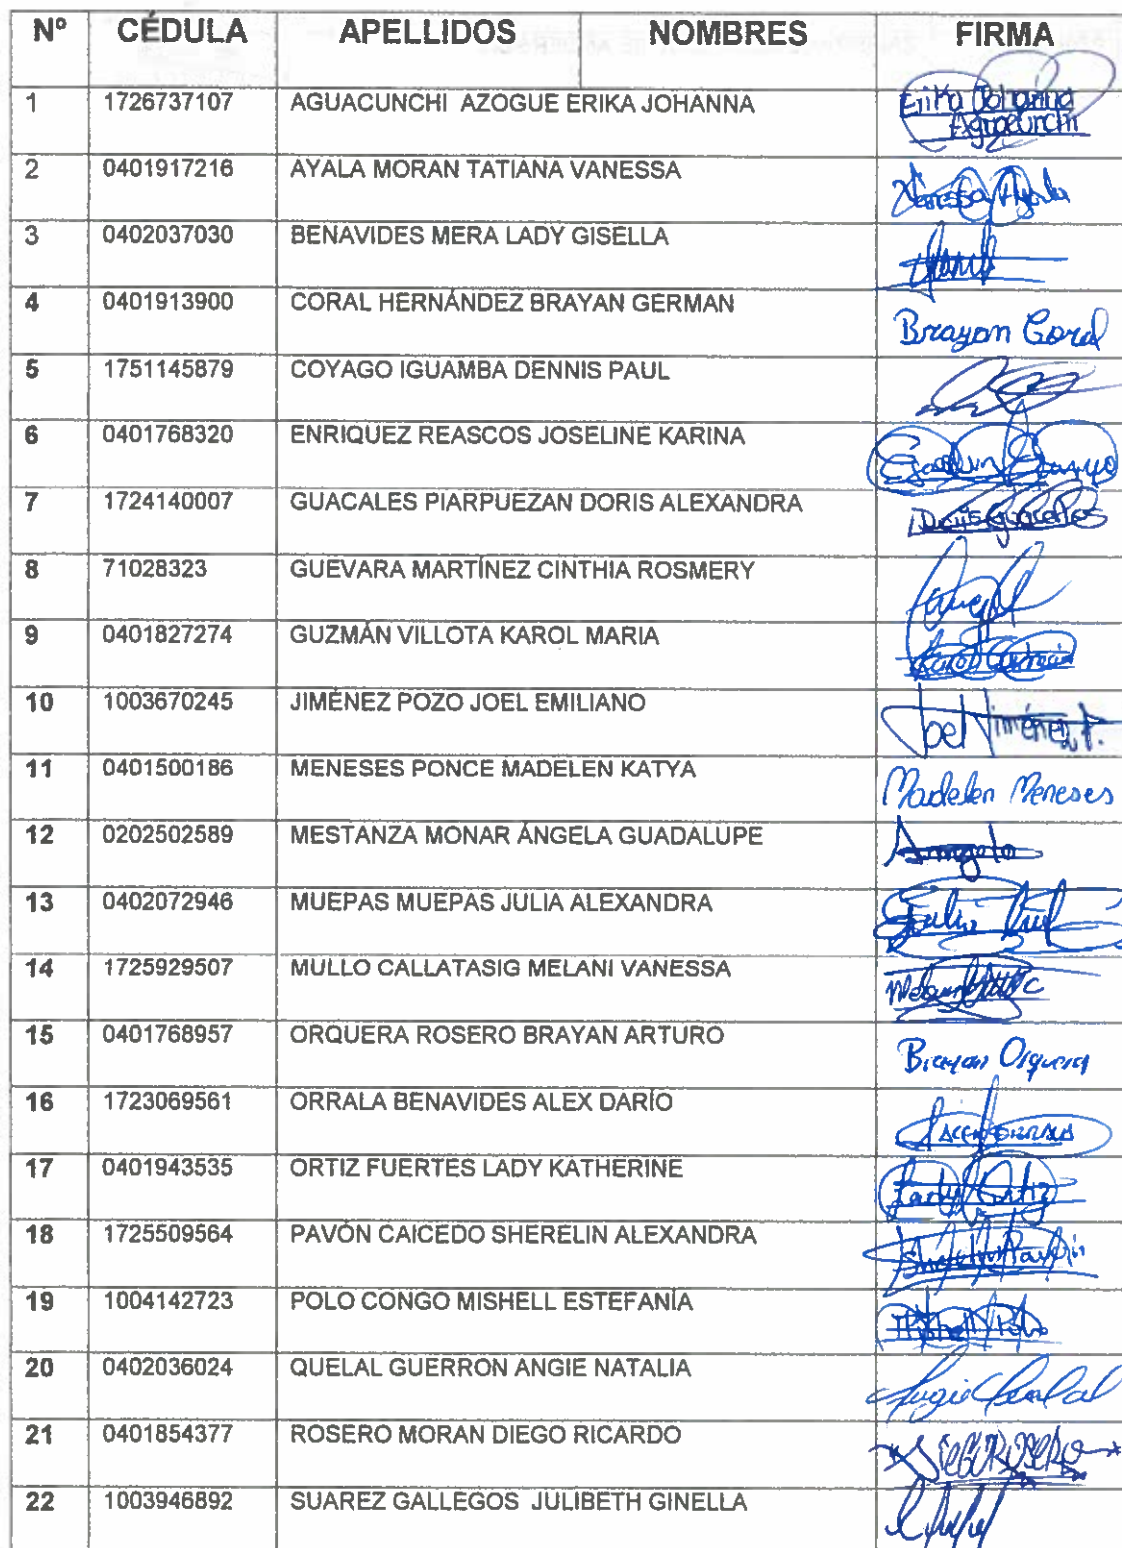 Nº CÉDULA APELLIDOS NOMBRES FIRMA
1 1726737107 AGUACUNCHI AZOGUE ERIKA JOHANNA Erika Johanna
Aguacunchi
2 0401917216 AYALA MORAN TATIANA VANESSA Vanessa Ayala
3 0402037030 BENAVIDES MERA LADY GISELLA
4 0401913900 CORAL HERNÁNDEZ BRAYAN GERMAN Brayan Coral
5 1751145879 COYAGO IGUAMBA DENNIS PAUL
6 0401768320 ENRIQUEZ REASCOS JOSELINE KARINA
7 1724140007 GUACALES PIARPUEZAN DORIS ALEXANDRA Doris Guacales
8 71028323 GUEVARA MARTÍNEZ CINTHIA ROSMERY
9 0401827274 GUZMÁN VILLOTA KAROL MARIA
10 1003670245 JIMÉNEZ POZO JOEL EMILIANO Joel Jiménez P.
11 0401500186 MENESES PONCE MADELEN KATYA Madelen Meneses
12 0202502589 MESTANZA MONAR ÁNGELA GUADALUPE
13 0402072946 MUEPAS MUEPAS JULIA ALEXANDRA
14 1725929507 MULLO CALLATASIG MELANI VANESSA
15 0401768957 ORQUERA ROSERO BRAYAN ARTURO Brayan Orquera
16 1723069561 ORRALA BENAVIDES ALEX DARÍO
17 0401943535 ORTIZ FUERTES LADY KATHERINE Lady Ortiz
18 1725509564 PAVÓN CAICEDO SHERELIN ALEXANDRA
19 1004142723 POLO CONGO MISHELL ESTEFANÍA Mishell Polo
20 0402036024 QUELAL GUERRON ANGIE NATALIA
21 0401854377 ROSERO MORAN DIEGO RICARDO
22 1003946892 SUAREZ GALLEGOS JULIBETH GINELLA